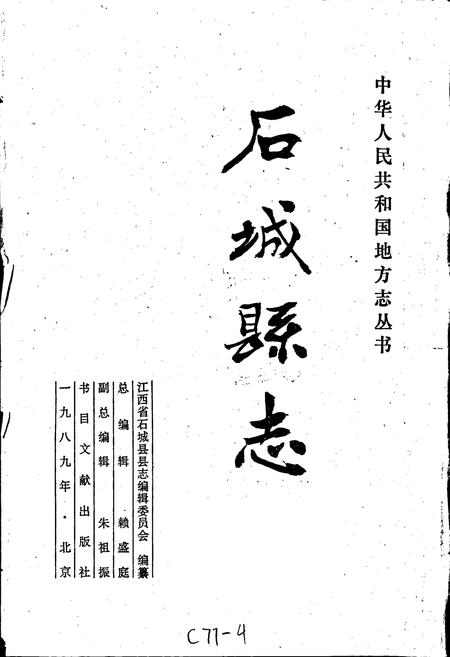 中华人民共和国地方志丛书
石城縣志
江西省石城县县志编辑委员会 编纂
总编辑 赖盛庭
副总编辑 朱祖振
书目文献出版社
一九八九年·北京
C77-4